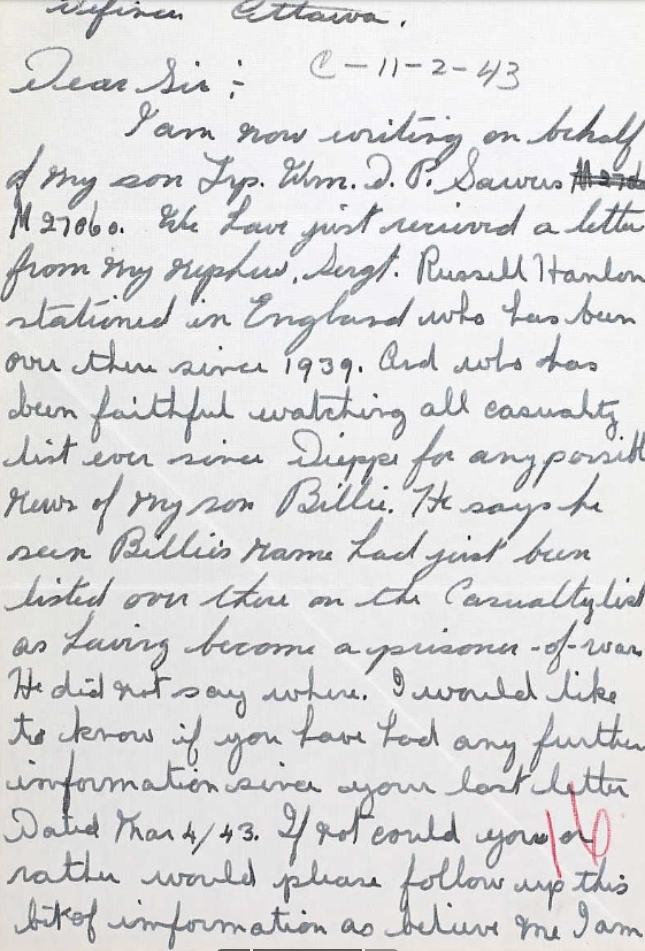 Defence Ottawa.
C-11-2-43
Dear Sir:-
I am now writing on behalf
of my son Trp. Wm. D. P. Sawers
M 27060. We have just recieved a letter
from my nephew, Sergt. Russell Hanlon
stationed in England who has been
over there since 1939. And who has
been faithful watching all casualty
list ever since Dieppe for any possibl
news of my son Billie. He says he
seen Billie's name had just been
listed over there on the Casualty list
as having become a prisoner-of-war.
He did not say where. I would like
to know if you have had any further
information since your last letter
Dated Mar 4/43. If not could you or
16
rather would please follow up this
bit of information as believe me I am